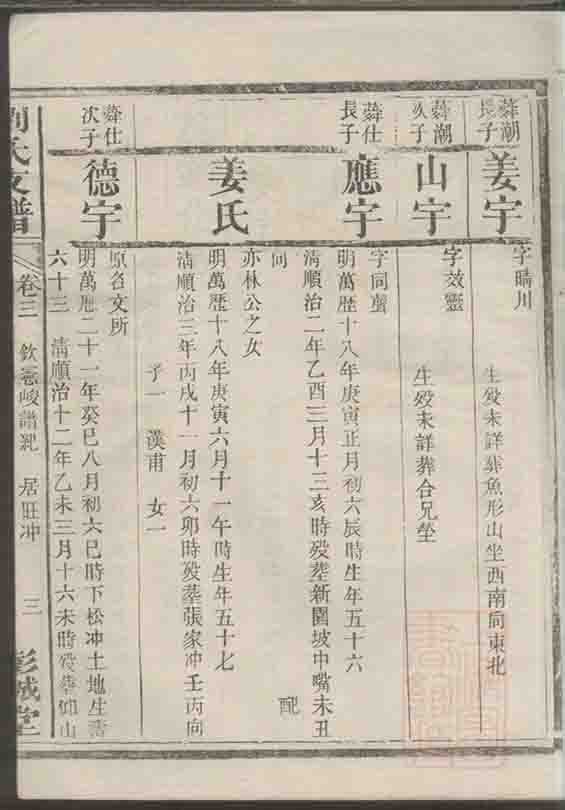 彝潮長子
姜宇
字晴川
生歿未詳葬魚形山坐西南向東北
彝潮次子
山宇
字效靈
生歿未詳葬合兄塋
彝仕長子
應宇
字同蠻
明萬歴十八年庚寅正月初六辰時生年五十六
清順治二年乙酉三月十三亥時歿塟新園坡中嘴未丑
向
配
姜氏
亦林公之女
明萬歴十八年庚寅六月十一午時生年五十七
清順治三年丙戌十一月初六卯時歿塟張家冲壬丙向
子一 漢甫 女一
彝仕次子
德宇
原名文所
明萬歴二十一年癸巳八月初六巳時下松冲土地生壽
六十三 清順治十二年乙未三月十六未時歿塟仰山
劉氏支譜
卷三
欽 峻譜 居旺冲
三
彭城堂